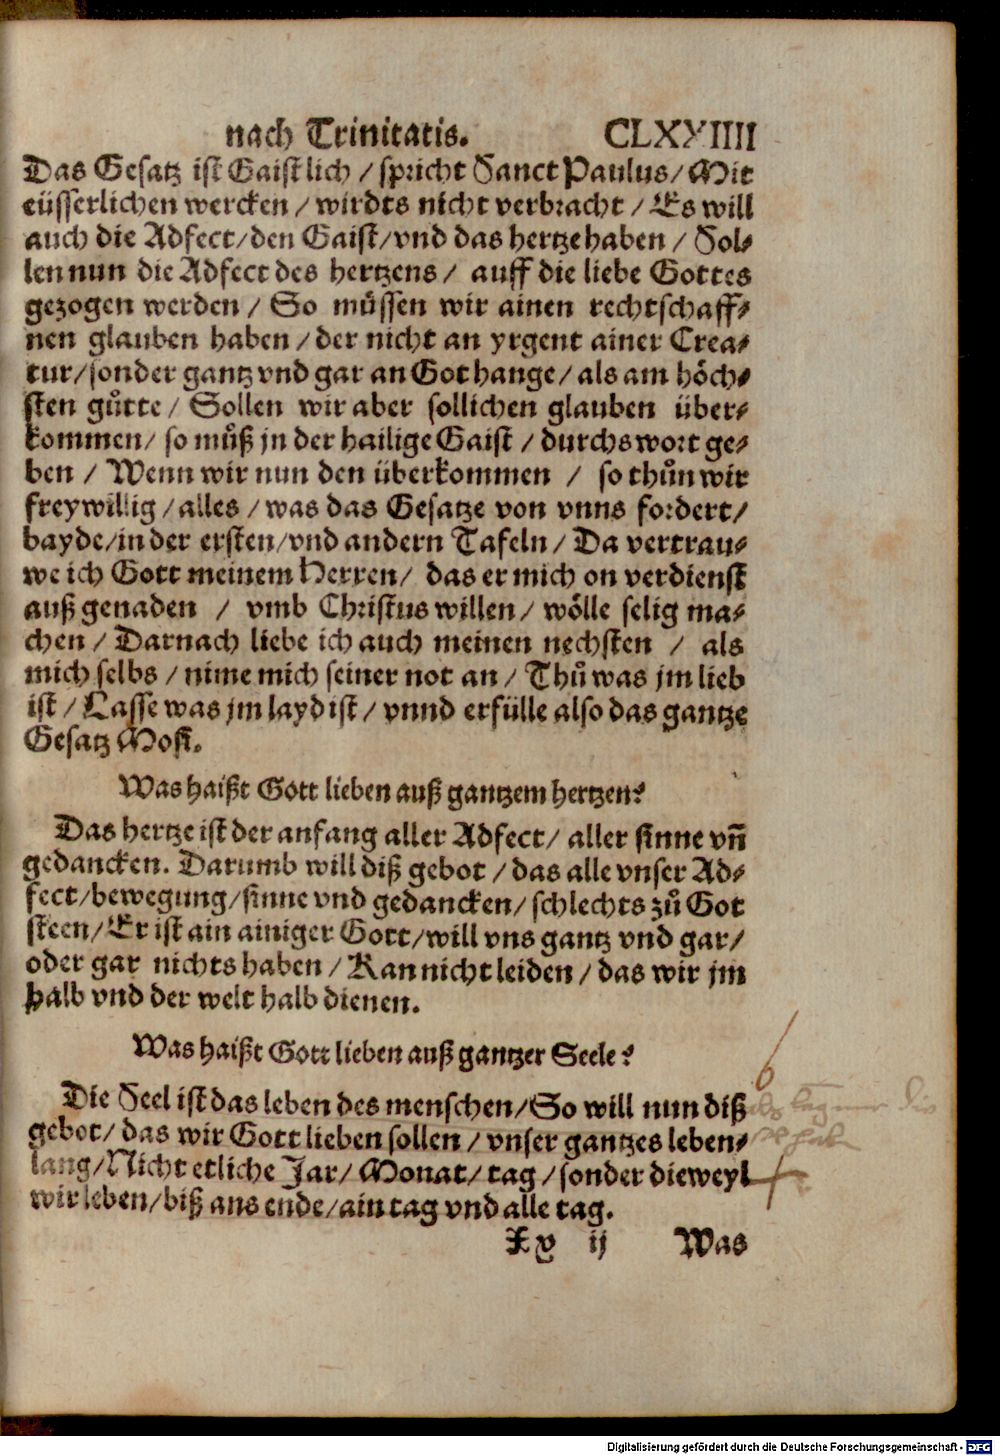 nach Trinitatis. CLXXIIII
Das Gesatz ist Gaistlich / spricht Sanct Paulus / Mit
eüsserlichen wercken / wirdts nicht verbracht / Es will
auch die Adfect / den Gaist / vnd das hertze haben / Sol⸗
len nun die Adfect des hertzens / auff die liebe Gottes
gezogen werden / So müssen wir ainen rechtschaff⸗
nen glauben haben / der nicht an yrgent ainer Crea⸗
tur / sonder gantz vnd gar an Got hange / als am höch⸗
sten gůtte / Sollen wir aber sollichen glauben über⸗
kommen / so můß jn der hailige Gaist / durchs wort ge⸗
ben / Wenn wir nun den überkommen / so thůn wir
freywillig / alles / was das Gesatze von vnns fordert /
bayde / in der ersten / vnd andern Tafeln / Da vertrau⸗
we ich Gott meinem Herren / das er mich on verdienst
auß genaden / vmb Christus willen / wölle selig ma⸗
chen / Darnach liebe ich auch meinen nechsten / als
mich selbs / nime mich seiner not an / Thů was jm lieb
ist / Lasse was jm layd ist / vnnd erfülle also das gantze
Gesatz Mosi.
Was haißt Gott lieben auß gantzem hertzen?
Das hertze ist der anfang aller Adfect / aller sinne vñ
gedancken. Darumb will diß gebot / das alle vnser Ad⸗
fect / bewegung / sinne vnd gedancken / schlechts zů Got
steen / Er ist ain ainiger Gott / will vns gantz vnd gar /
oder gar nichts haben / Kan nicht leiden / das wir jm
halb vnd der welt halb dienen.
Was haißt Gott lieben auß gantzer Seele?
Die Seel ist das leben des menschen / So will nun diß
gebot / das wir Gott lieben sollen / vnser gantzes leben⸗
lang / Nicht etliche Jar / Monat / tag / sonder dieweyl
wir leben / biß ans ende / ain tag vnd alle tag.
Xy ij Was
Digitalisierung gefördert durch die Deutsche Forschungsgemeinschaft - DFG